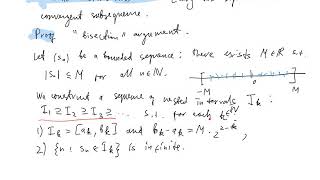 convergent subsequence.
Proof "bisection" argument.
Let (sₙ) be a bounded sequence: there exists M∈ℝ s.t.
|sₙ| ≤ M for all n∈ℕ.
-M 0 M
We construct a sequence of nested intervals Iₖ:
I₁ ⊇ I₂ ⊇ I₃ ⊇ ... s.t. for each k∈ℕ
1) Iₖ = [aₖ, bₖ] and bₖ-aₖ = M·2^(2-k),
2) {n : sₙ ∈ Iₖ} is infinite.